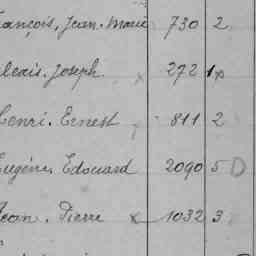 François, Jean-Marie 730 2
Alexis. Joseph x 272 1
Henri. Ernest 811 2
Eugène, Edouard 2090 5 D
Jean. Pierre x 1032 3